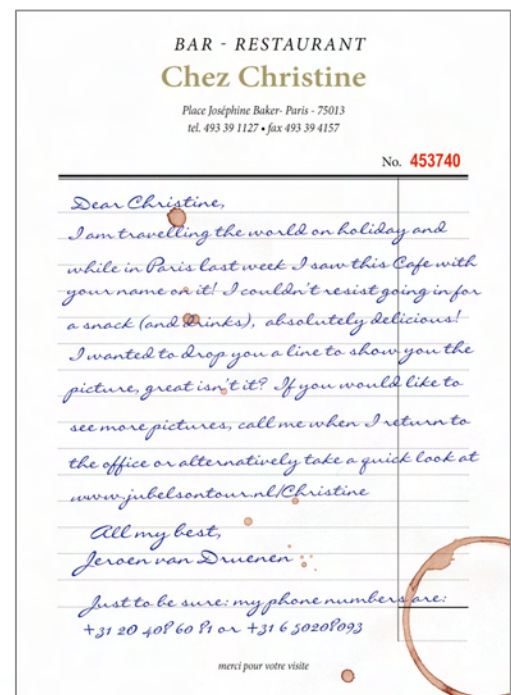 BAR - RESTAURANT
Chez Christine
Place Joséphine Baker- Paris - 75013
tel. 493 39 1127 • fax 493 39 4157
No. 453740
Dear Christine,
I am travelling the world on holiday and
while in Paris last week I saw this Cafe with
your name on it! I couldn't resist going in for
a snack (and drinks), absolutely delicious!
I wanted to drop you a line to show you the
picture, great isn't it? If you would like to
see more pictures, call me when I return to
the office or alternatively take a quick look at
www.jubelsontour.nl/Christine
All my best,
Jeroen van Druenen
Just to be sure: my phone numbers are:
+31 20 408 60 81 or +31 6 50208093
merci pour votre visite